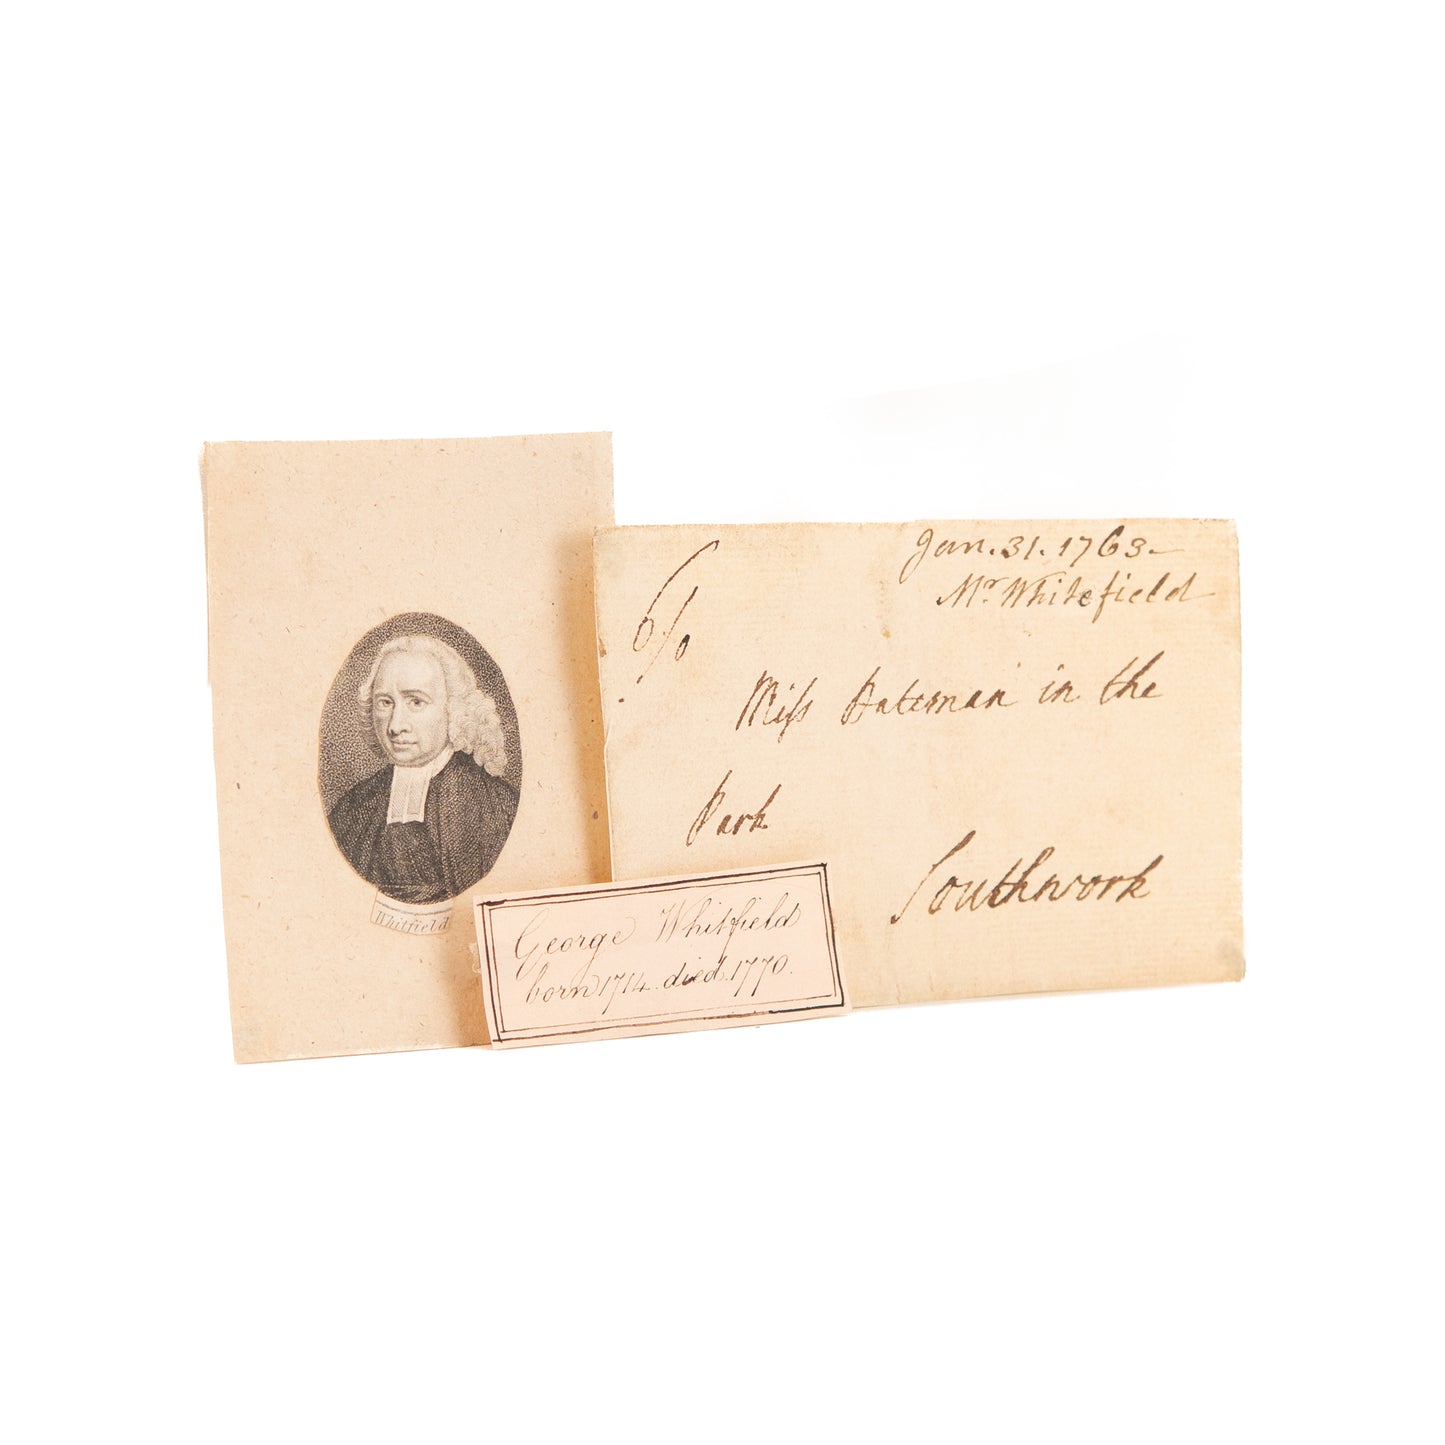 Whitfield
Jan. 31. 1763.
Mr. Whitefield
To
Miſs Bateman in the
Park
Southwork
George Whitfield
born 1714. died. 1770.